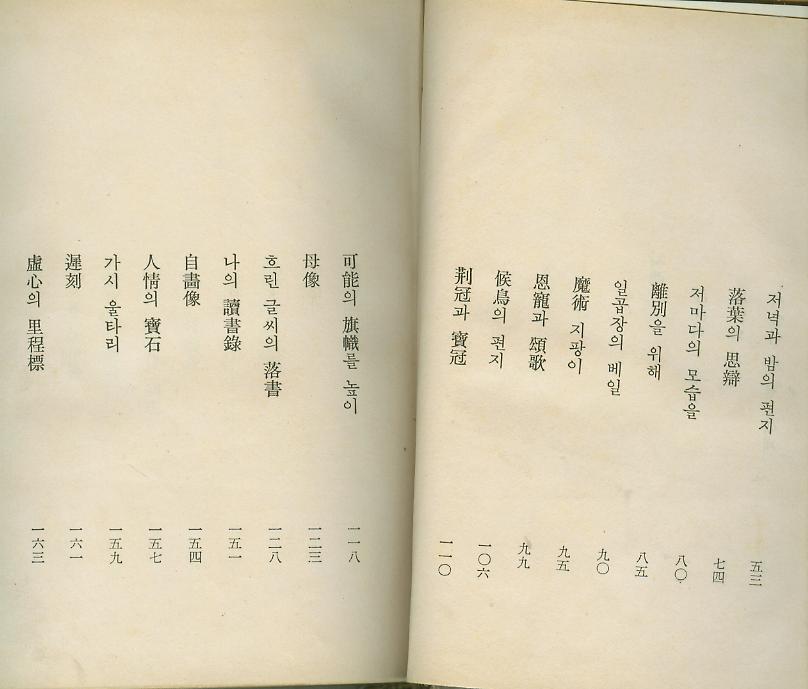 저녁과 밤의 편지 五三
落葉의 思辯 七四
저마다의 모습을 八〇
離別을 위해 八五
일곱장의 베일 九〇
魔術 지팡이 九五
恩寵과 頌歌 九九
候鳥의 편지 一〇六
荊冠과 寶冠 一一〇
可能의 旗幟를 높이 一一八
母像 一二三
흐린 글씨의 落書 一二八
나의 讀書錄 一五一
自畵像 一五四
人情의 寶石 一五七
가시 울타리 一五九
遲刻 一六一
虛心의 里程標 一六三